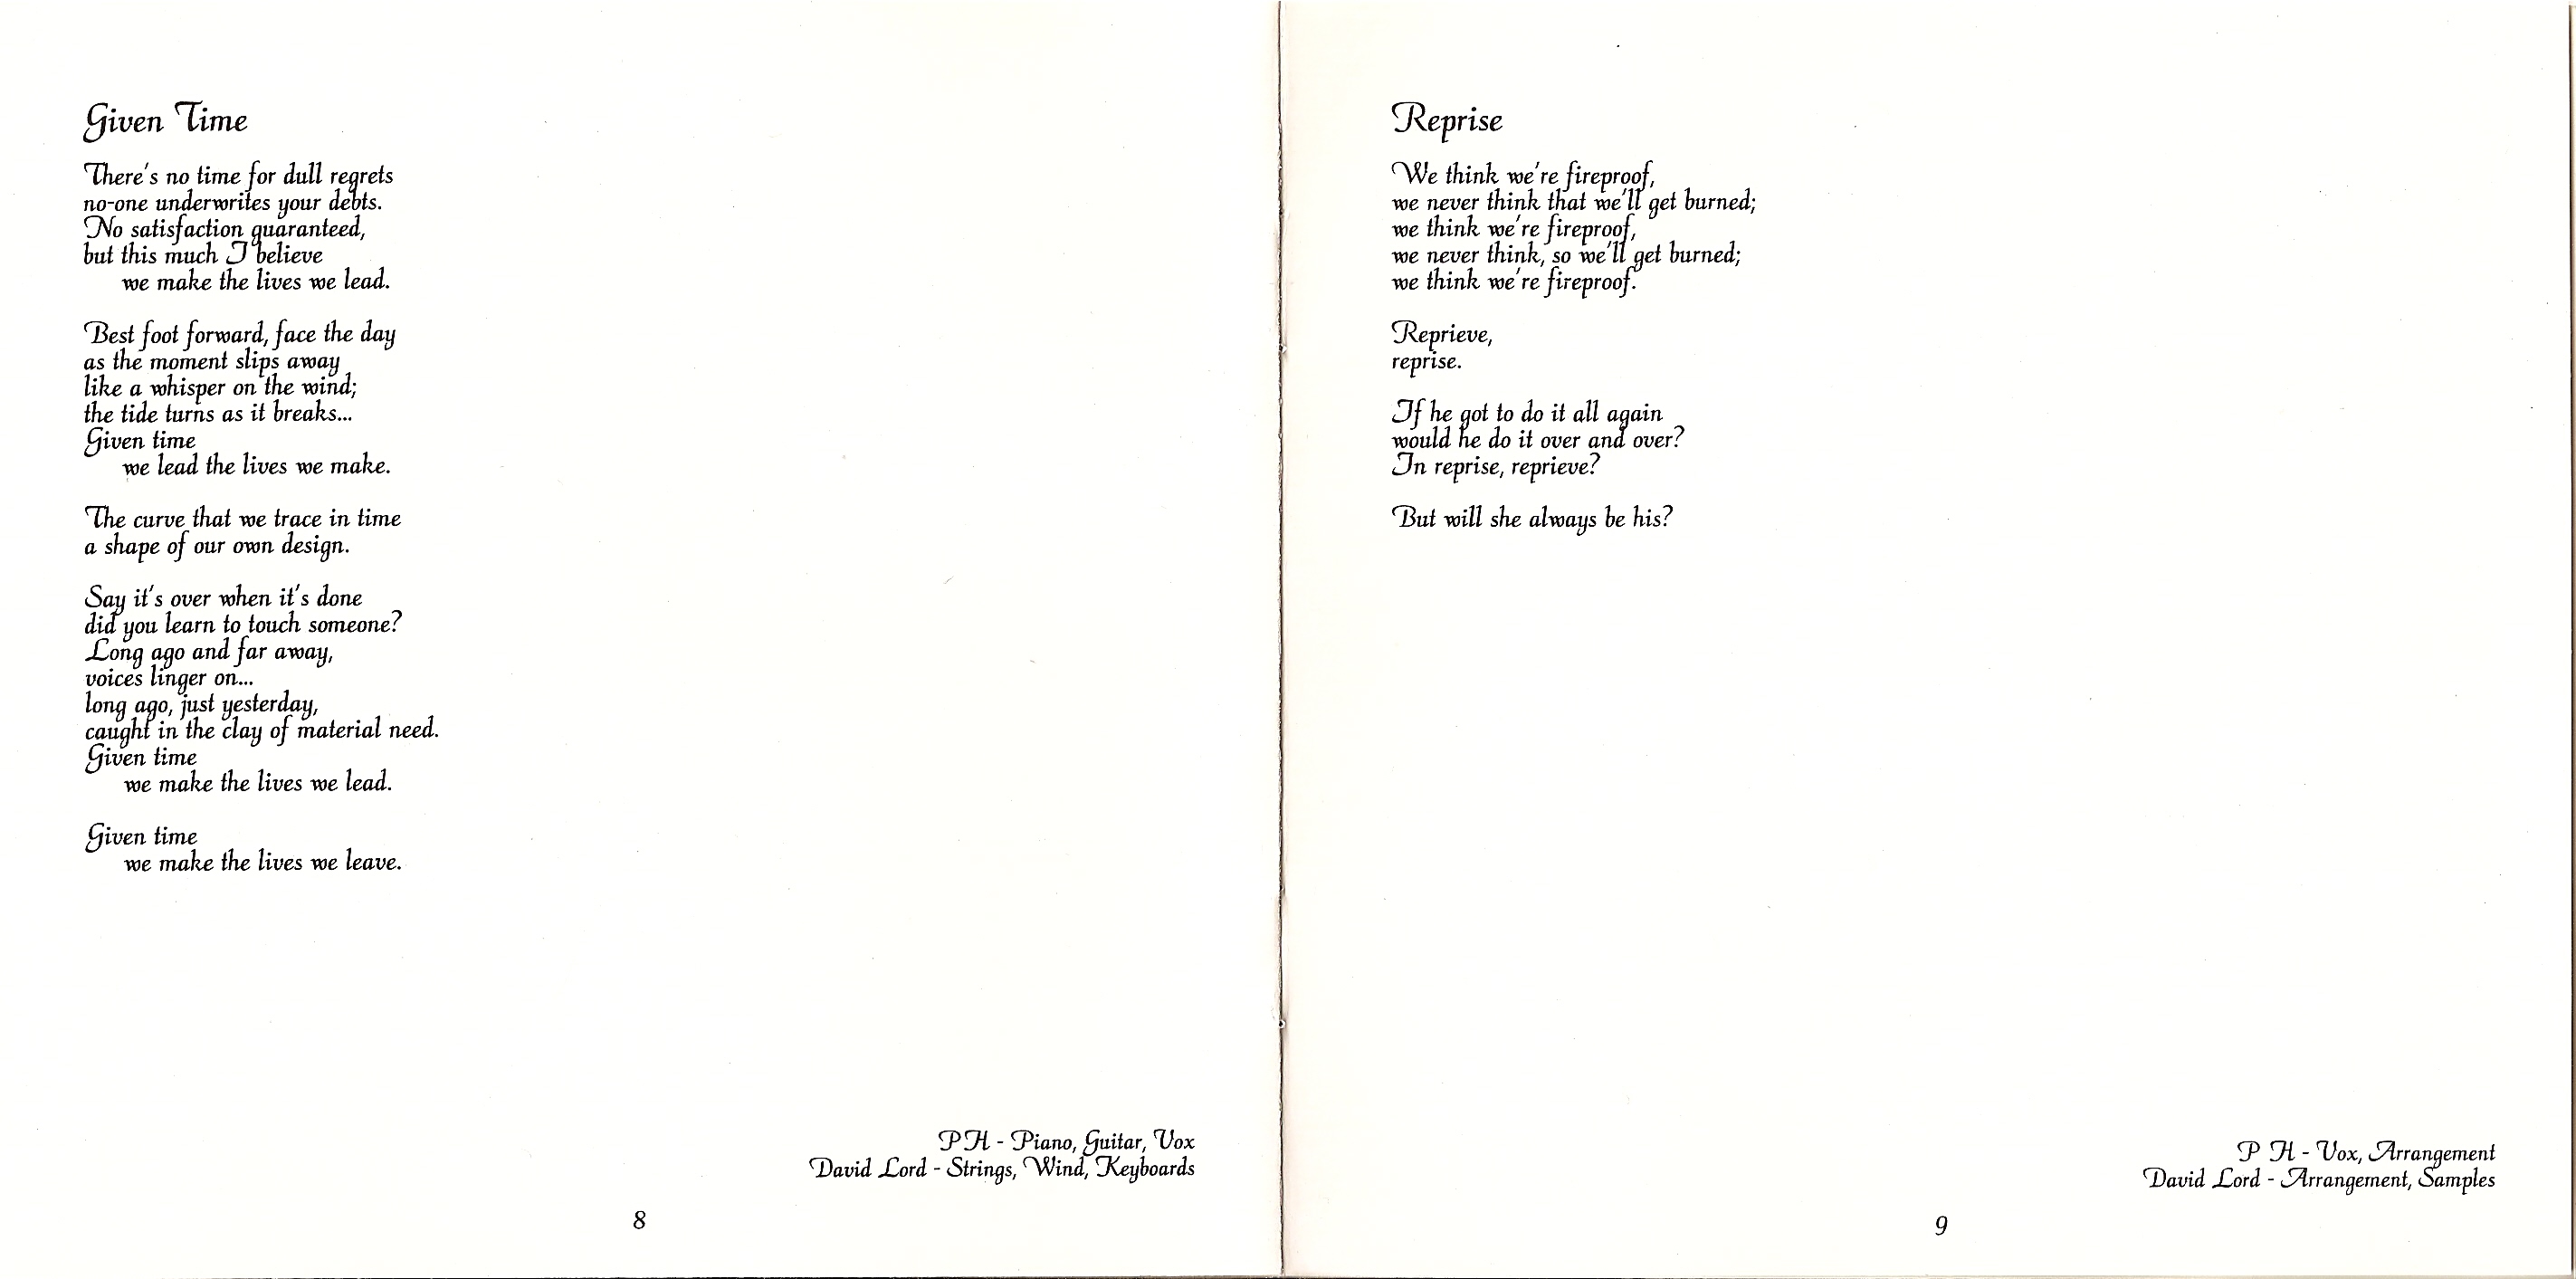 Given Time
There's no time for dull regrets
no-one underwrites your debts.
No satisfaction guaranteed,
but this much I believe
we make the lives we lead.
Best foot forward, face the day
as the moment slips away
like a whisper on the wind;
the tide turns as it breaks...
Given time
we lead the lives we make.
The curve that we trace in time
a shape of our own design.
Say it's over when it's done
did you learn to touch someone?
Long ago and far away,
voices linger on...
long ago, just yesterday,
caught in the clay of material need.
Given time
we make the lives we lead.
Given time
we make the lives we leave.
PH - Piano, Guitar, Vox
David Lord - Strings, Wind, Keyboards
8
Reprise
We think we're fireproof,
we never think that we'll get burned;
we think we're fireproof,
we never think, so we'll get burned;
we think we're fireproof.
Reprieve,
reprise.
If he got to do it all again
would he do it over and over?
In reprise, reprieve?
But will she always be his?
P H - Vox, Arrangement
David Lord - Arrangement, Samples
9